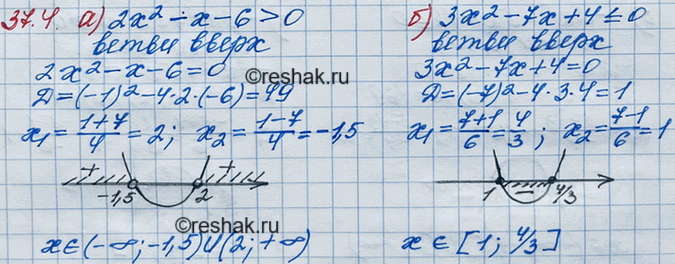 37.4. а) 2x² - x - 6 > 0
ветви вверх
2x² - x - 6 = 0
D = (-1)² - 4·2·(-6) = 49
x₁ = (1+7)/4 = 2; x₂ = (1-7)/4 = -1,5
+ +
-1,5 2
x ∈ (-∞; -1,5) ∪ (2; +∞)
б) 3x² - 7x + 4 ≤ 0
ветви вверх
3x² - 7x + 4 = 0
D = (-7)² - 4·3·4 = 1
x₁ = (7+1)/6 = 4/3; x₂ = (7-1)/6 = 1
-
1 4/3
x ∈ [1; 4/3]
©reshak.ru
©reshak.ru